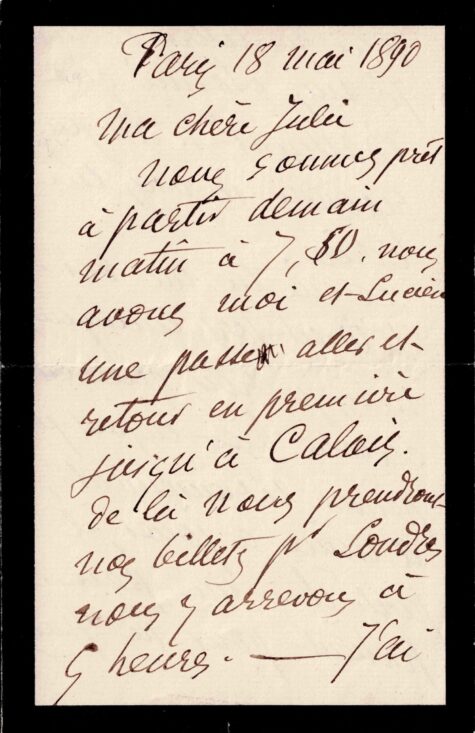 Paris 18 mai 1890
Ma chère Julie
nous sommes prêt
à partir demain
matin à 7,50. nous
avons moi et Lucien
une passe aller et
retour en première
jusqu'à Calais.
de là nous prendrons
nos billets pr Londres
nous y arrivons à
5 heures. — J'ai